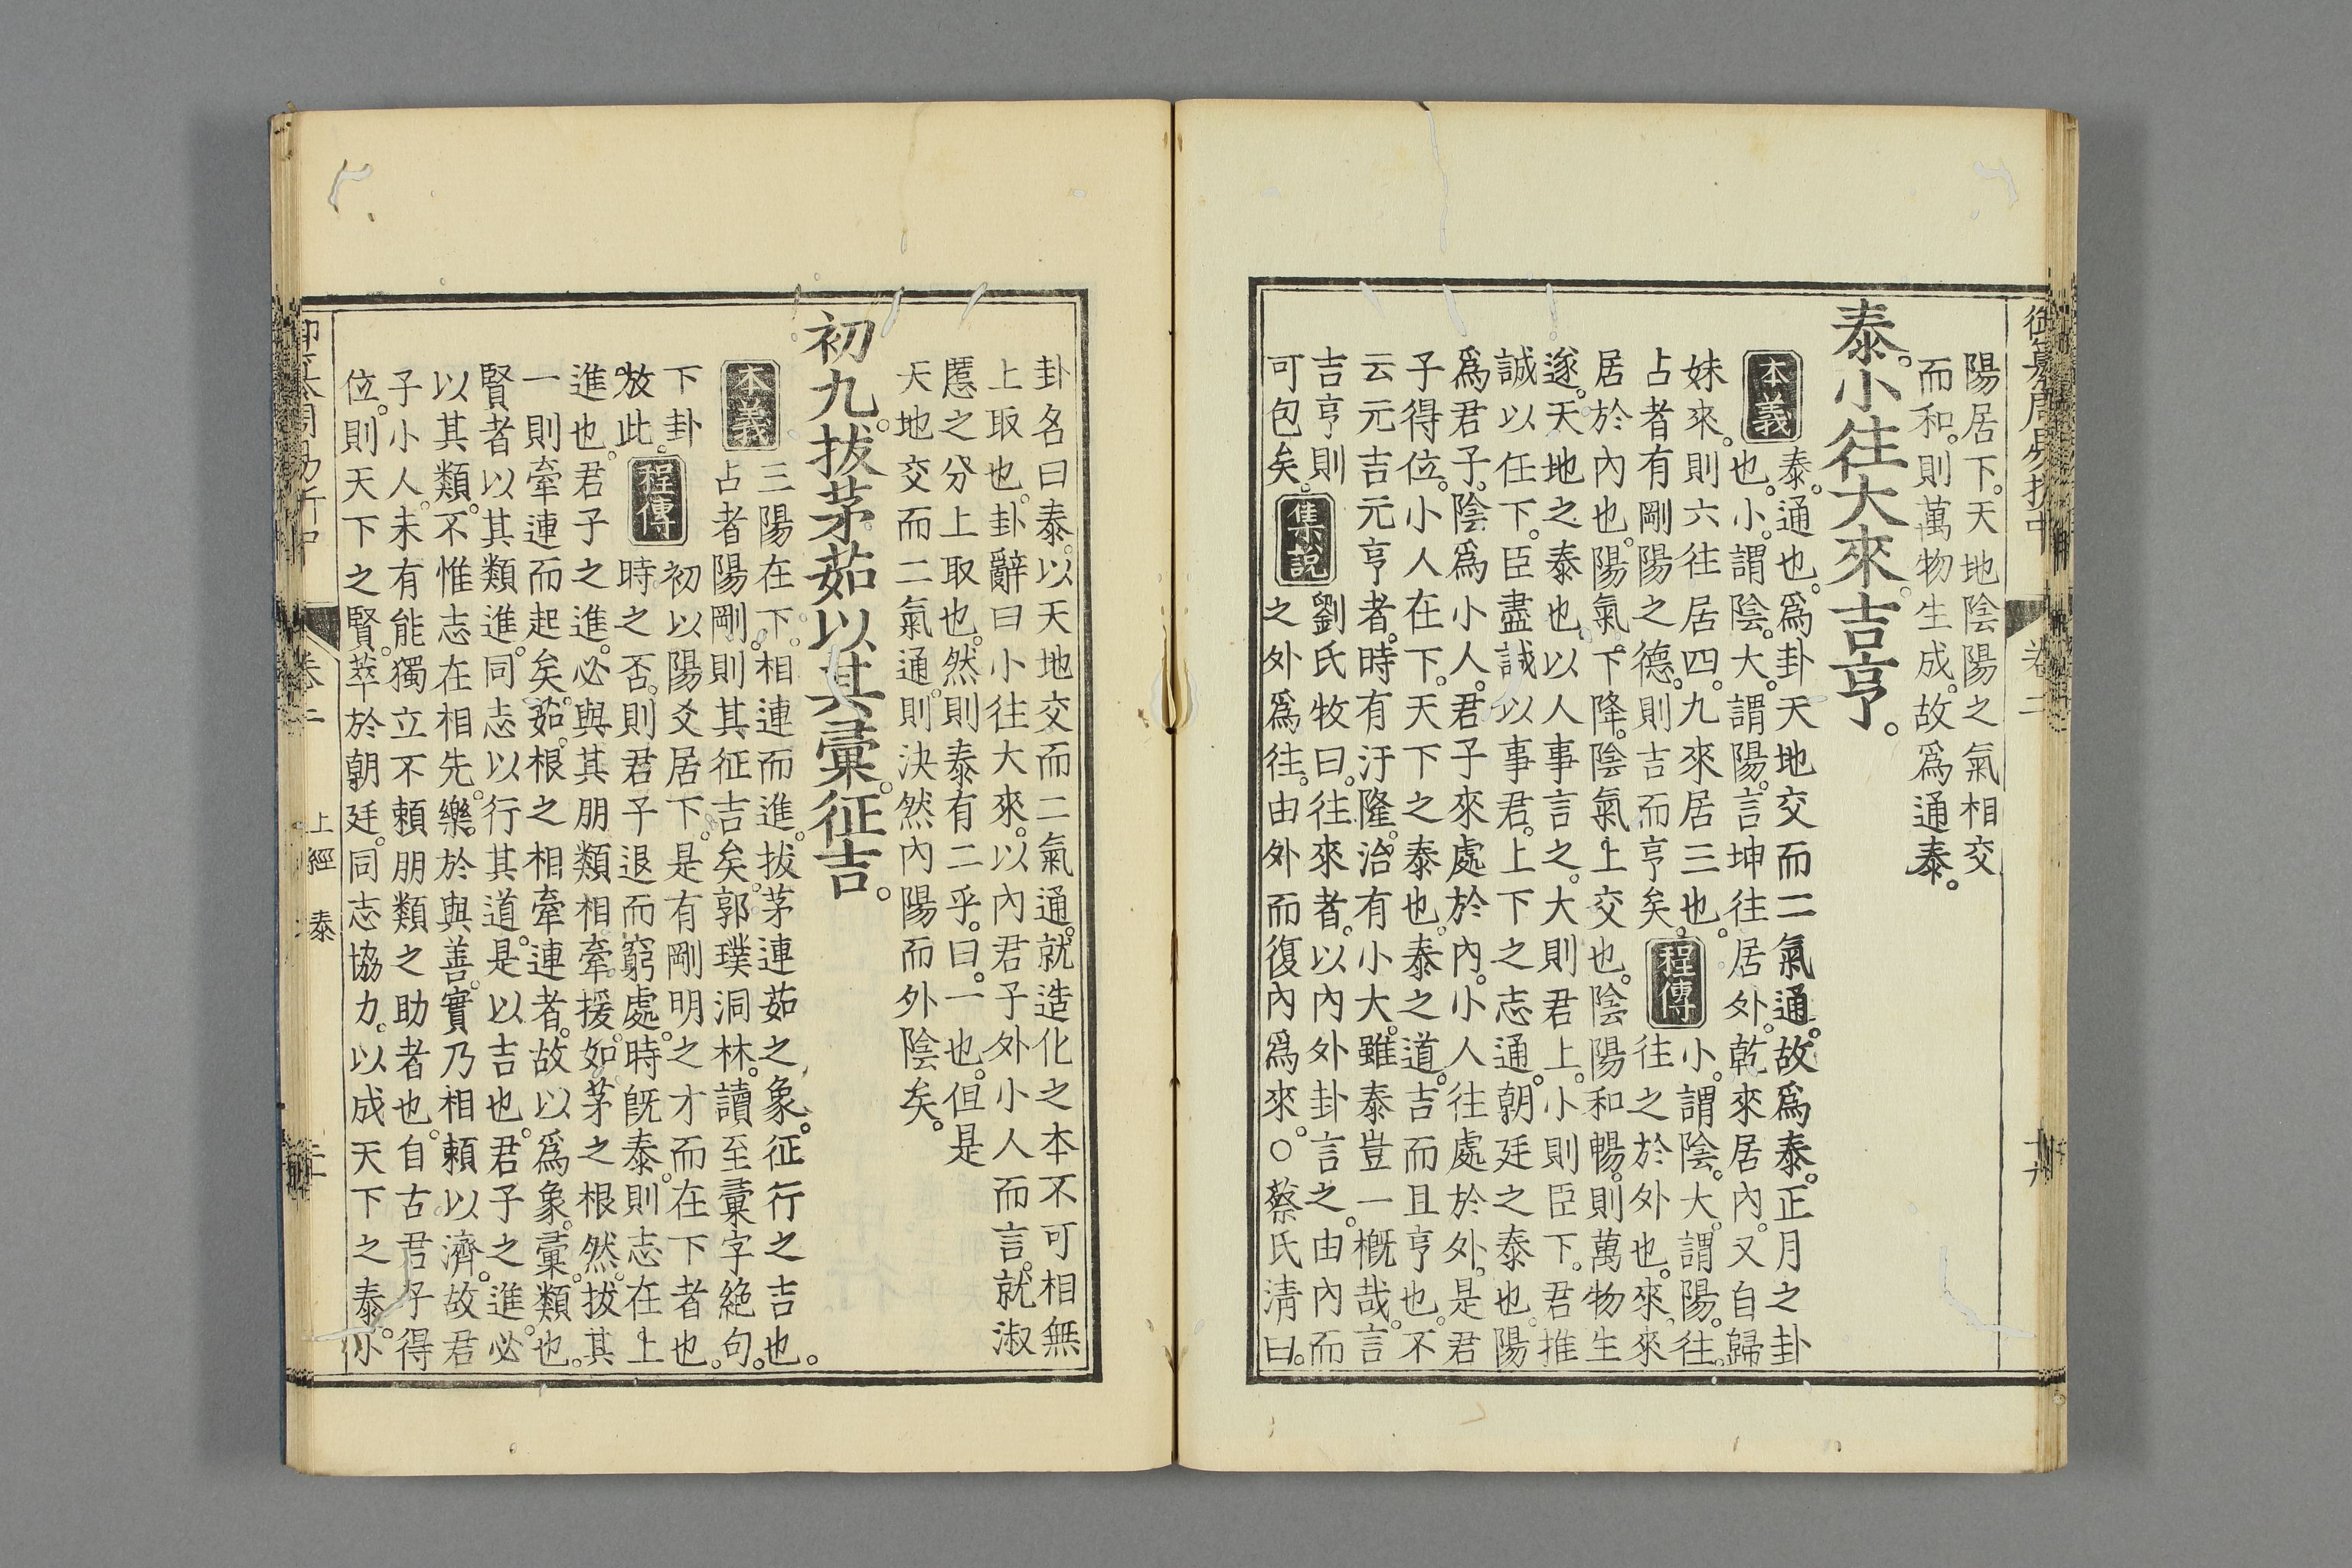 御纂周易折中 卷二
陽居下。天地陰陽之氣相交
而和。則萬物生成。故爲通泰。
泰。小往大來。吉亨。
本義
泰。通也。爲卦天地交而二氣通。故爲泰。正月之卦
也。小。謂陰。大。謂陽。言坤往居外。乾來居內。又自歸
妹來。則六往居四。九來居三也。
占者有剛陽之德。則吉而亨矣。
程傳
小。謂陰。大。謂陽。往。
往之於外也。來。來
居於內也。陽氣下降。陰氣上交也。陰陽和暢。則萬物生
遂。天地之泰也。以人事言之。大則君上。小則臣下。君推
誠以任下。臣盡誠以事君。上下之志通。朝廷之泰也。陽
爲君子。陰爲小人。君子來處於內。小人往處於外。是君
子得位。小人在下。天下之泰也。泰之道。吉而且亨也。不
云元吉元亨者。時有汙隆。治有小大。雖泰豈一槪哉。言
吉亨則
可包矣。
集說
劉氏牧曰。往來者。以內外卦言之。由內而
之外爲往。由外而復內爲來。○蔡氏清曰。
卦名曰泰。以天地交而二氣通。就造化之本不可相無
上取也。卦辭曰小往大來。以內君子外小人而言。就淑
慝之分上取也。然則泰有二乎。曰。一也。但是
天地交而二氣通。則決然內陽而外陰矣。
初九。拔茅茹以其彙。征吉。
本義
三陽在下。相連而進。拔茅連茹之象。征行之吉也。
占者陽剛。則其征吉矣。郭璞洞林。讀至彙字絶句。
下卦
放此。
程傳
初以陽爻居下。是有剛明之才而在下者也。
時之否。則君子退而窮處。時旣泰。則志在上
進也。君子之進。必與其朋類相牽援。如茅之根然。拔其
一則牽連而起矣。茹。根之相牽連者。故以爲象。彙。類也。
賢者以其類進。同志以行其道。是以吉也。君子之進。必
以其類。不惟志在相先。樂於與善。實乃相賴以濟。故君
子小人。未有能獨立不賴朋類之助者也。自古君子得
位。則天下之賢。萃於朝廷。同志協力。以成天下之泰。小
卷二 上經 泰